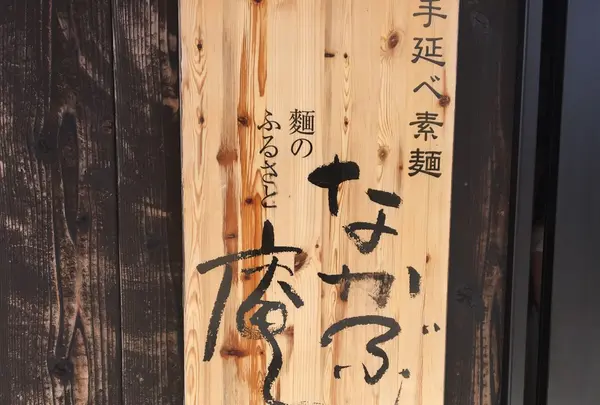 手延べ素麺
なかぶ
麺の
ふるさと
庵